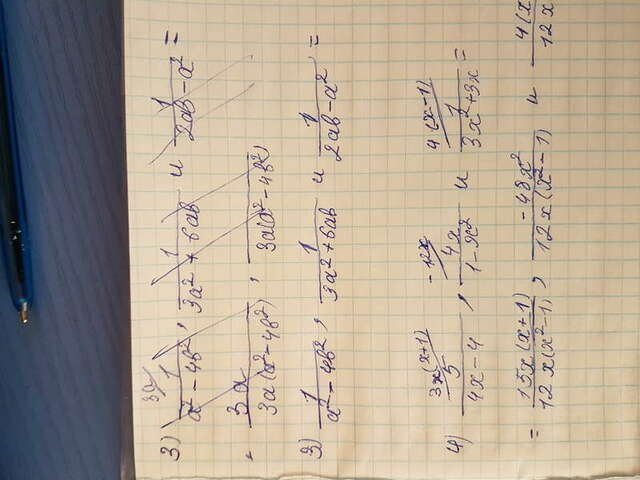 3a
3) 1/(a² - 4b²), 1/(3a² + 6ab) и 1/(2ab - a²) =
= 3a/(3a(a² - 4b²)), /(3a(a² - 4b²))
3) 1/(a² - 4b²), 1/(3a² + 6ab) и 1/(2ab - a²) =
3x(x+1) -12x 4(x-1)
4) 5/(4x - 4), 4x/(1 - x²) и 1/(3x² + 3x) =
= 15x(x+1)/(12x(x² - 1)), -48x²/(12x(x² - 1)) и 4(x/(12x